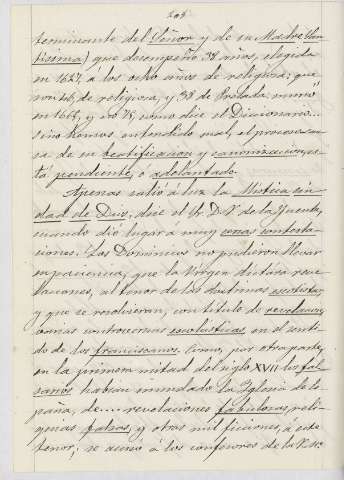 208
terminante del Señor y de su Madre San-
tísima) que desempeñó 38 años, elegida
en 1627, á los ocho años de religiosa; que
son 46, de religiosa, y 38 de Prelada: murió
en 1665, y no 78, como dice el Diccionario...
sino hemos entendido mal, el proceso cau-
sa de su beatificacion y canonizacion, es-
tá pendiente, o adelantado.
Apenas salió á luz la Mística ciu-
dad de Dios, dice el Sr. D. V. de la Fuente,
cuando dió lugar a muy contesta-
ciones. Los Dominicos no pudieron llevar
en paciencia, que la Virgen dictara reve-
laciones, al tenor de las doctrinas escotistas,
y que se resolvieran, con titulo de revelacion,
controversias escolasticas, en el senti-
do de los franciscanos. Como, por otra parte,
en la primera mitad del siglo XVII los fal-
sarios habian inundado la Iglesia de Es-
paña, de.... revelaciones fabulosas, reli-
quias falsas, y otras mil ficciones, á este
tenor; se acusó á los confesores de la V. M.